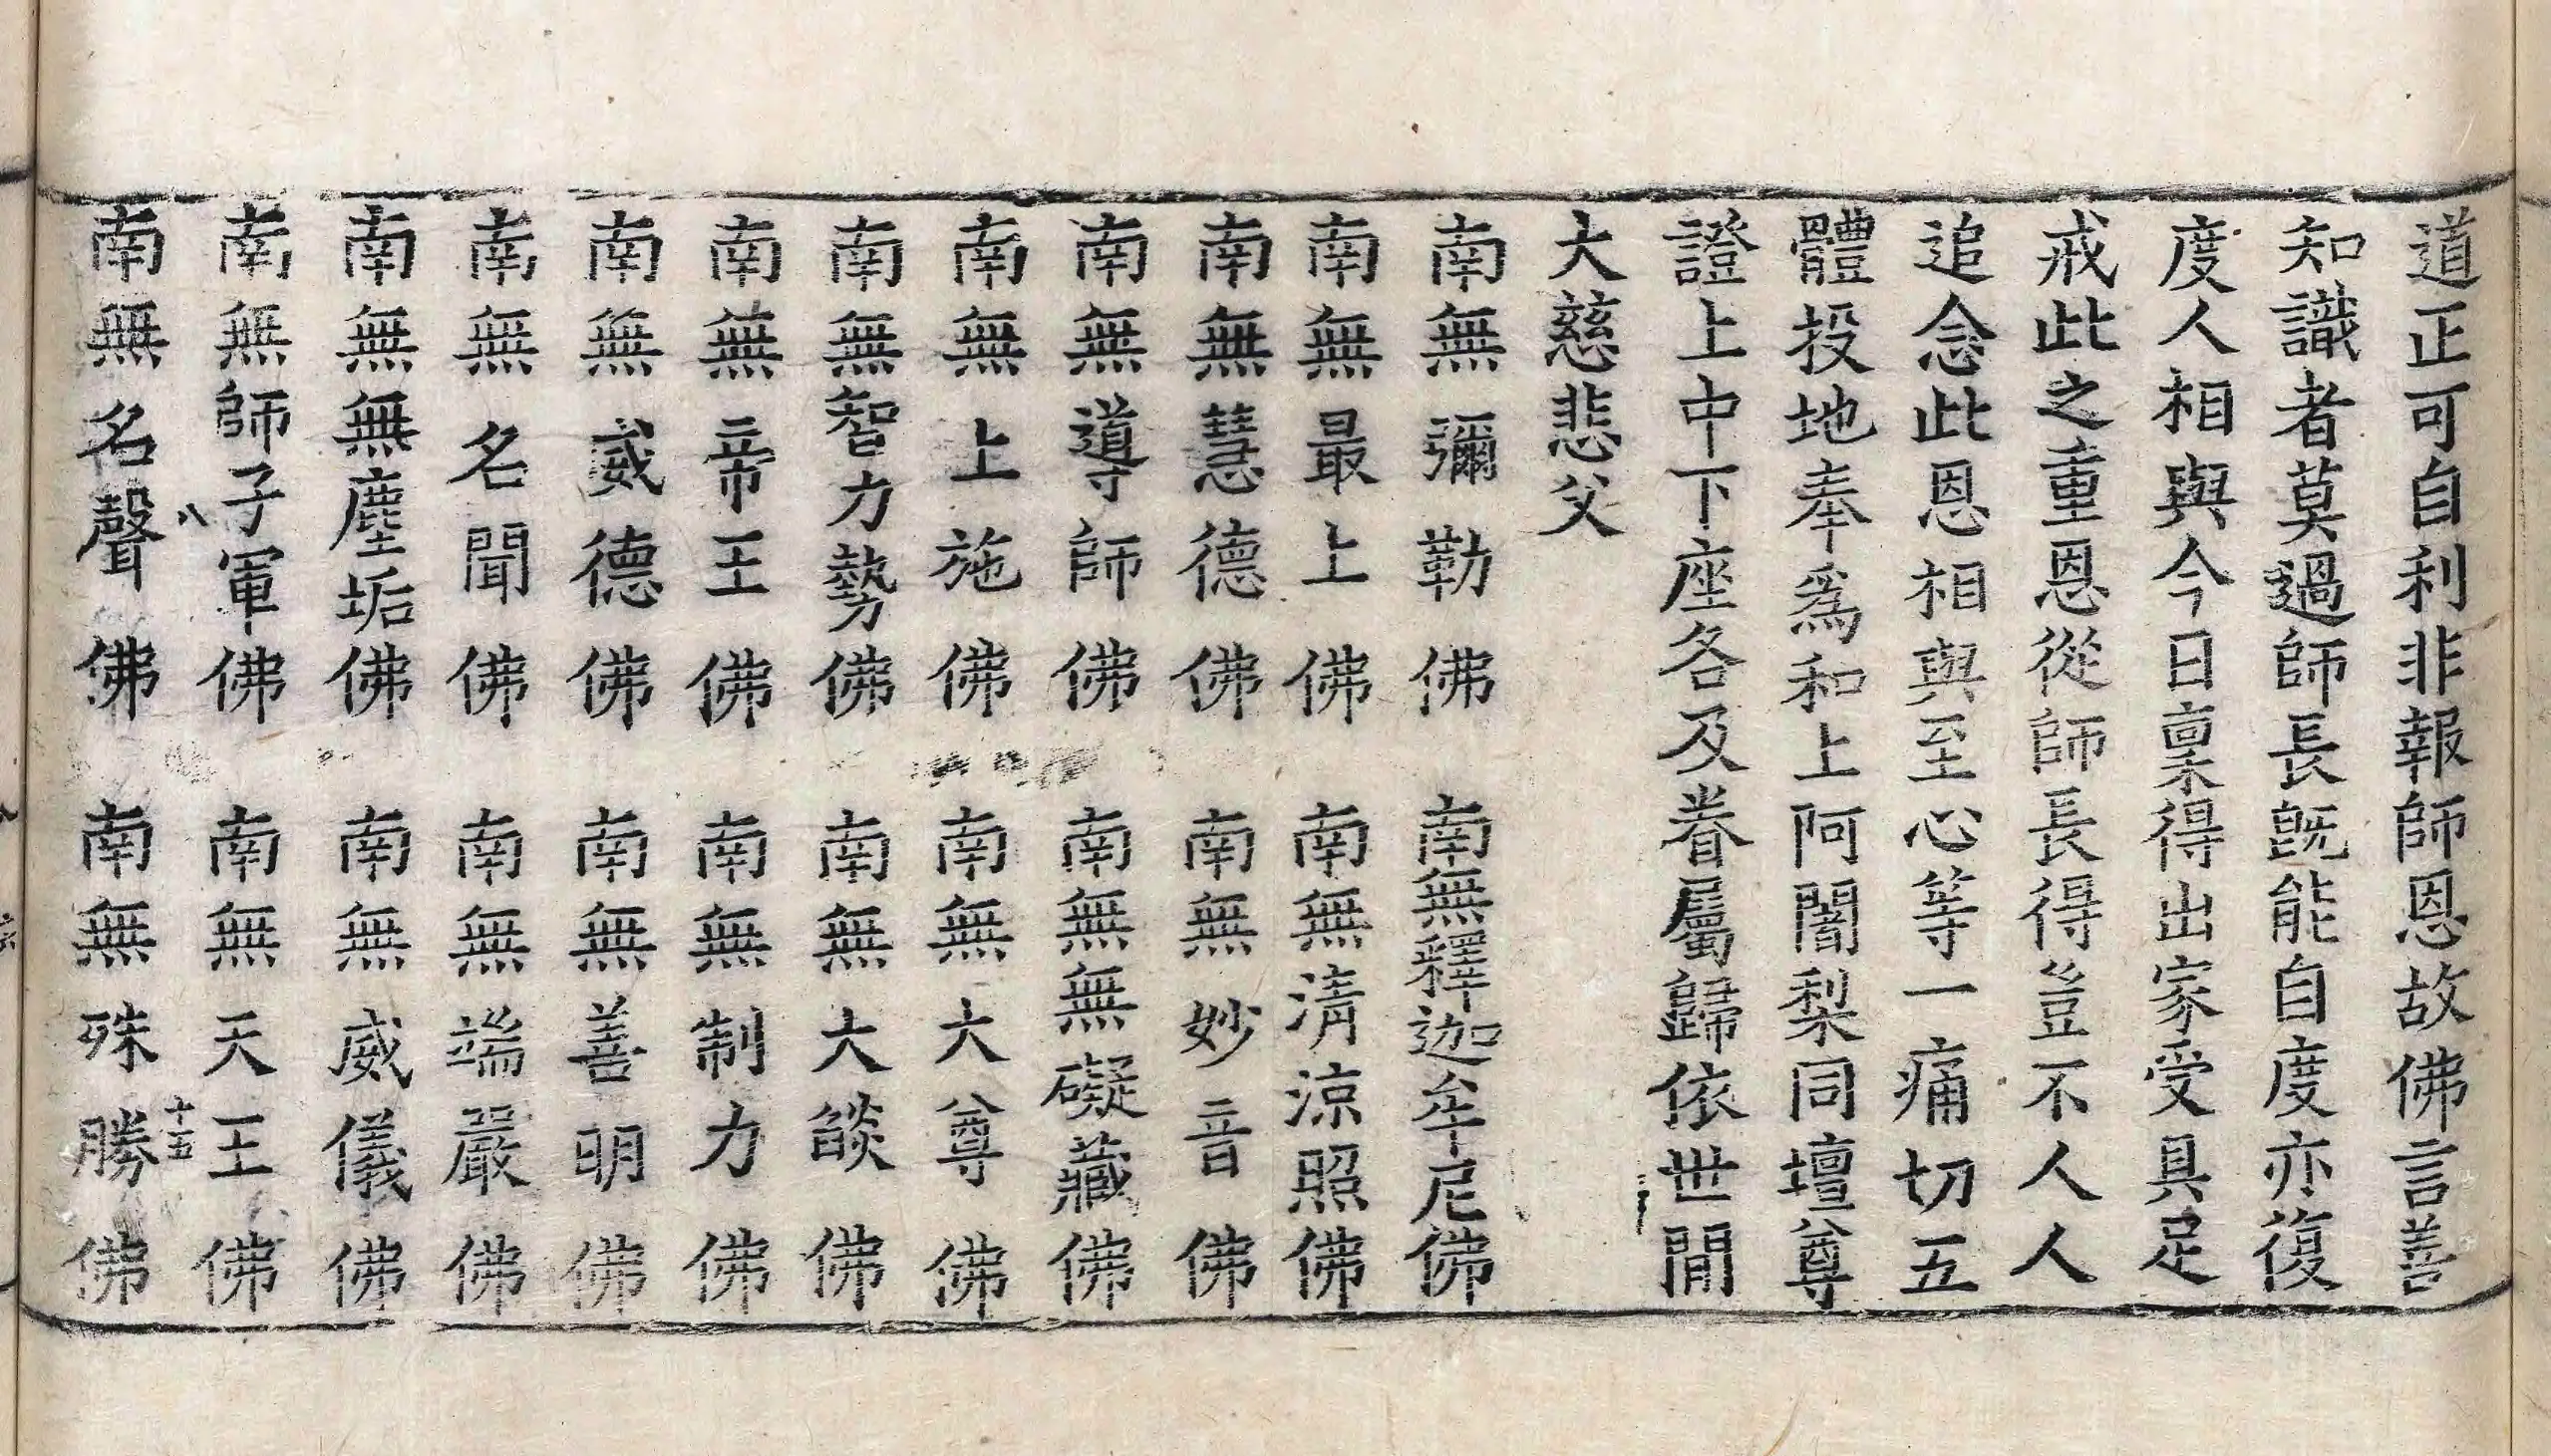 道正可自利非報師恩故佛言善
知識者莫過師長旣能自度亦復
度人相與今日稟得出家受具足
戒此之重恩從師長得豈不人人
追念此恩相與至心等一痛切五
體投地奉爲和上阿闍梨同壇尊
證上中下座各及眷屬歸依世間
大慈悲父
南無彌勒佛 南無釋迦牟尼佛
南無最上佛 南無清涼照佛
南無慧德佛 南無妙音佛
南無導師佛 南無無礙藏佛
南無上施佛 南無大尊佛
南無智力勢佛 南無大燄佛
南無帝王佛 南無制力佛
南無威德佛 南無善明佛
南無名聞佛 南無端嚴佛
南無無塵垢佛 南無威儀佛
南無師子軍佛 南無天王佛
八 十五
南無名聲佛 南無殊勝佛